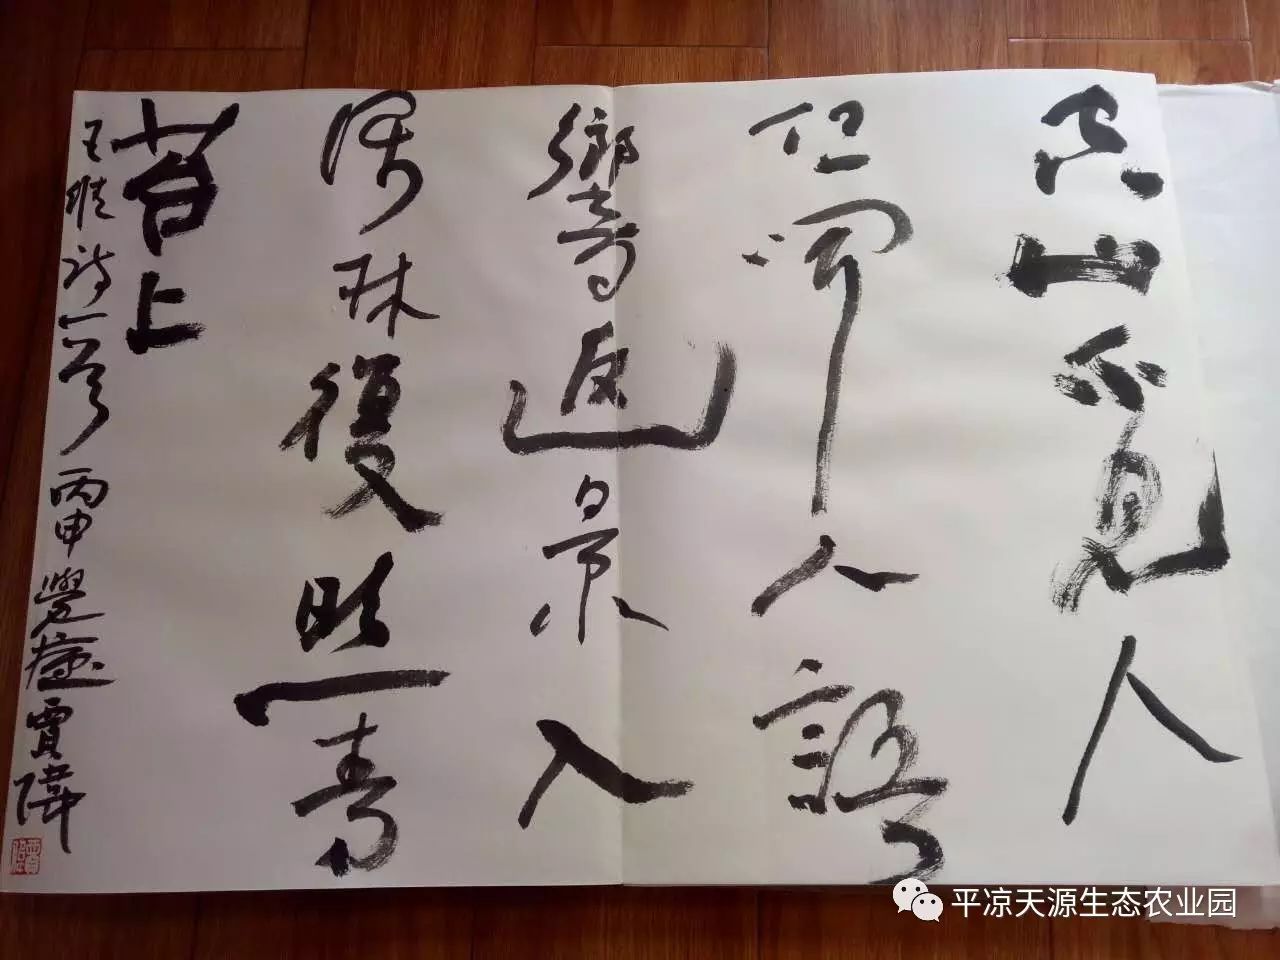 空山不見人
但聞人語
響返景入
深林復照青
苔上
王維詩一首 丙申 覺 賈偉
平凉天源生态农业园